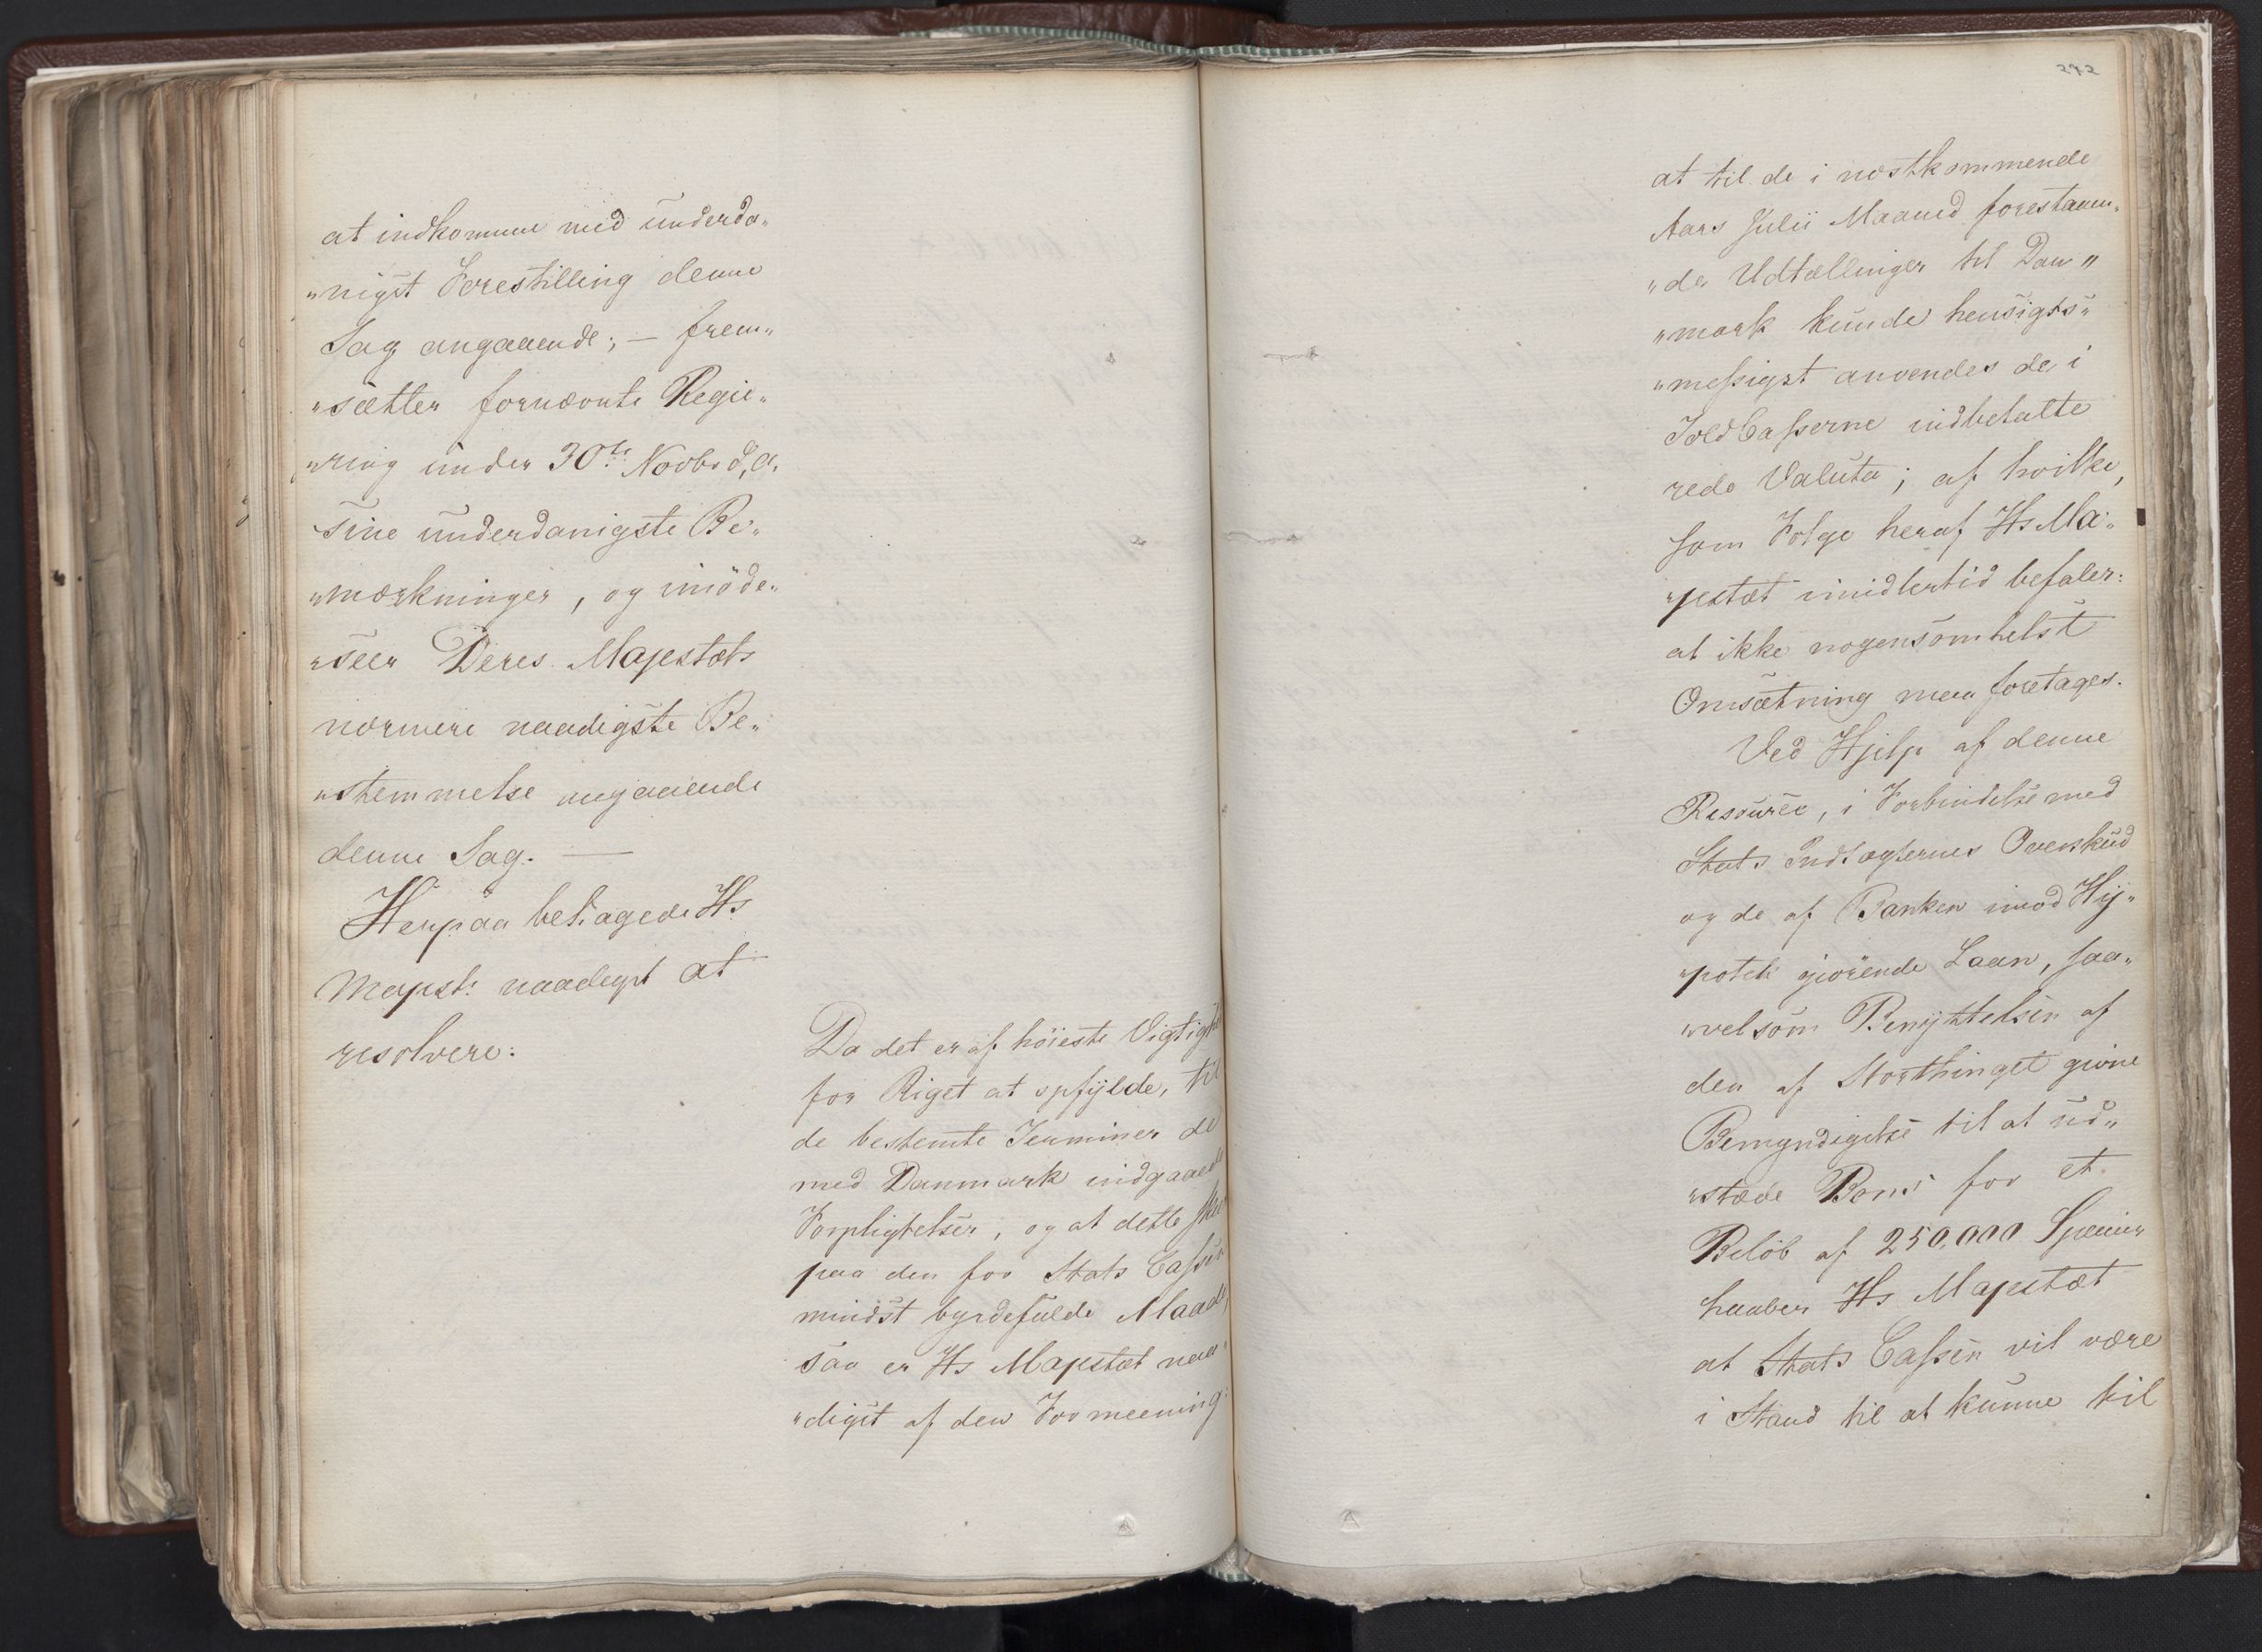 at indkomme med underda„
„nigst Forestilling denne
Sag angaaende; — frem„
„sætter fornævnte Regie„
„ring under 30te Novbr d. a.
sine underdanigste Be„
„mærkninger, og imøde„
„seer Deres Majestæts
nærmere naadigste Be„
„stemmelse angaaende
denne Sag. —
Herpaa behagede Hs
Majest: naadigst at
resolvere:
Da det er af höieste Vigtighed
for Riget at opfylde, til
de bestemte Terminer de
med Danmark indgaaede
Forpligtelser, og at dette skeer
paa den for Stats Cassen
mindst byrdefulde Maade,
saa er Hs Majestæt naa„
„digst af den Formeening:
292
at til de i næstkommende
Aars Julii Maaned forestaaen„
„de Udtællinger til Dan„
„mark kunde hensigts„
„messigst anvendes de i
Told Casserne indbetalte
rede Valuta; af hvilke,
som Følge heraf Hs Ma„
„jestæt imidlertid befaler:
at ikke nogensomhelst
Omsætning maa foretages.
Ved Hjelp af denne
Resource, i Forbindelse med
Stats Indtægternes Overskud
og de af Banken imod Hy„
„pothek giörende Laan, saa„
„velsom Benyttelsen af
den af Storthinget givne
Bemyndigelse til at ud„
„stæde Bons for et
Beløb af 250,000 Specier
haaber Hs Majestæt
at Stats Cassen vil være
i Stand til at kunne til